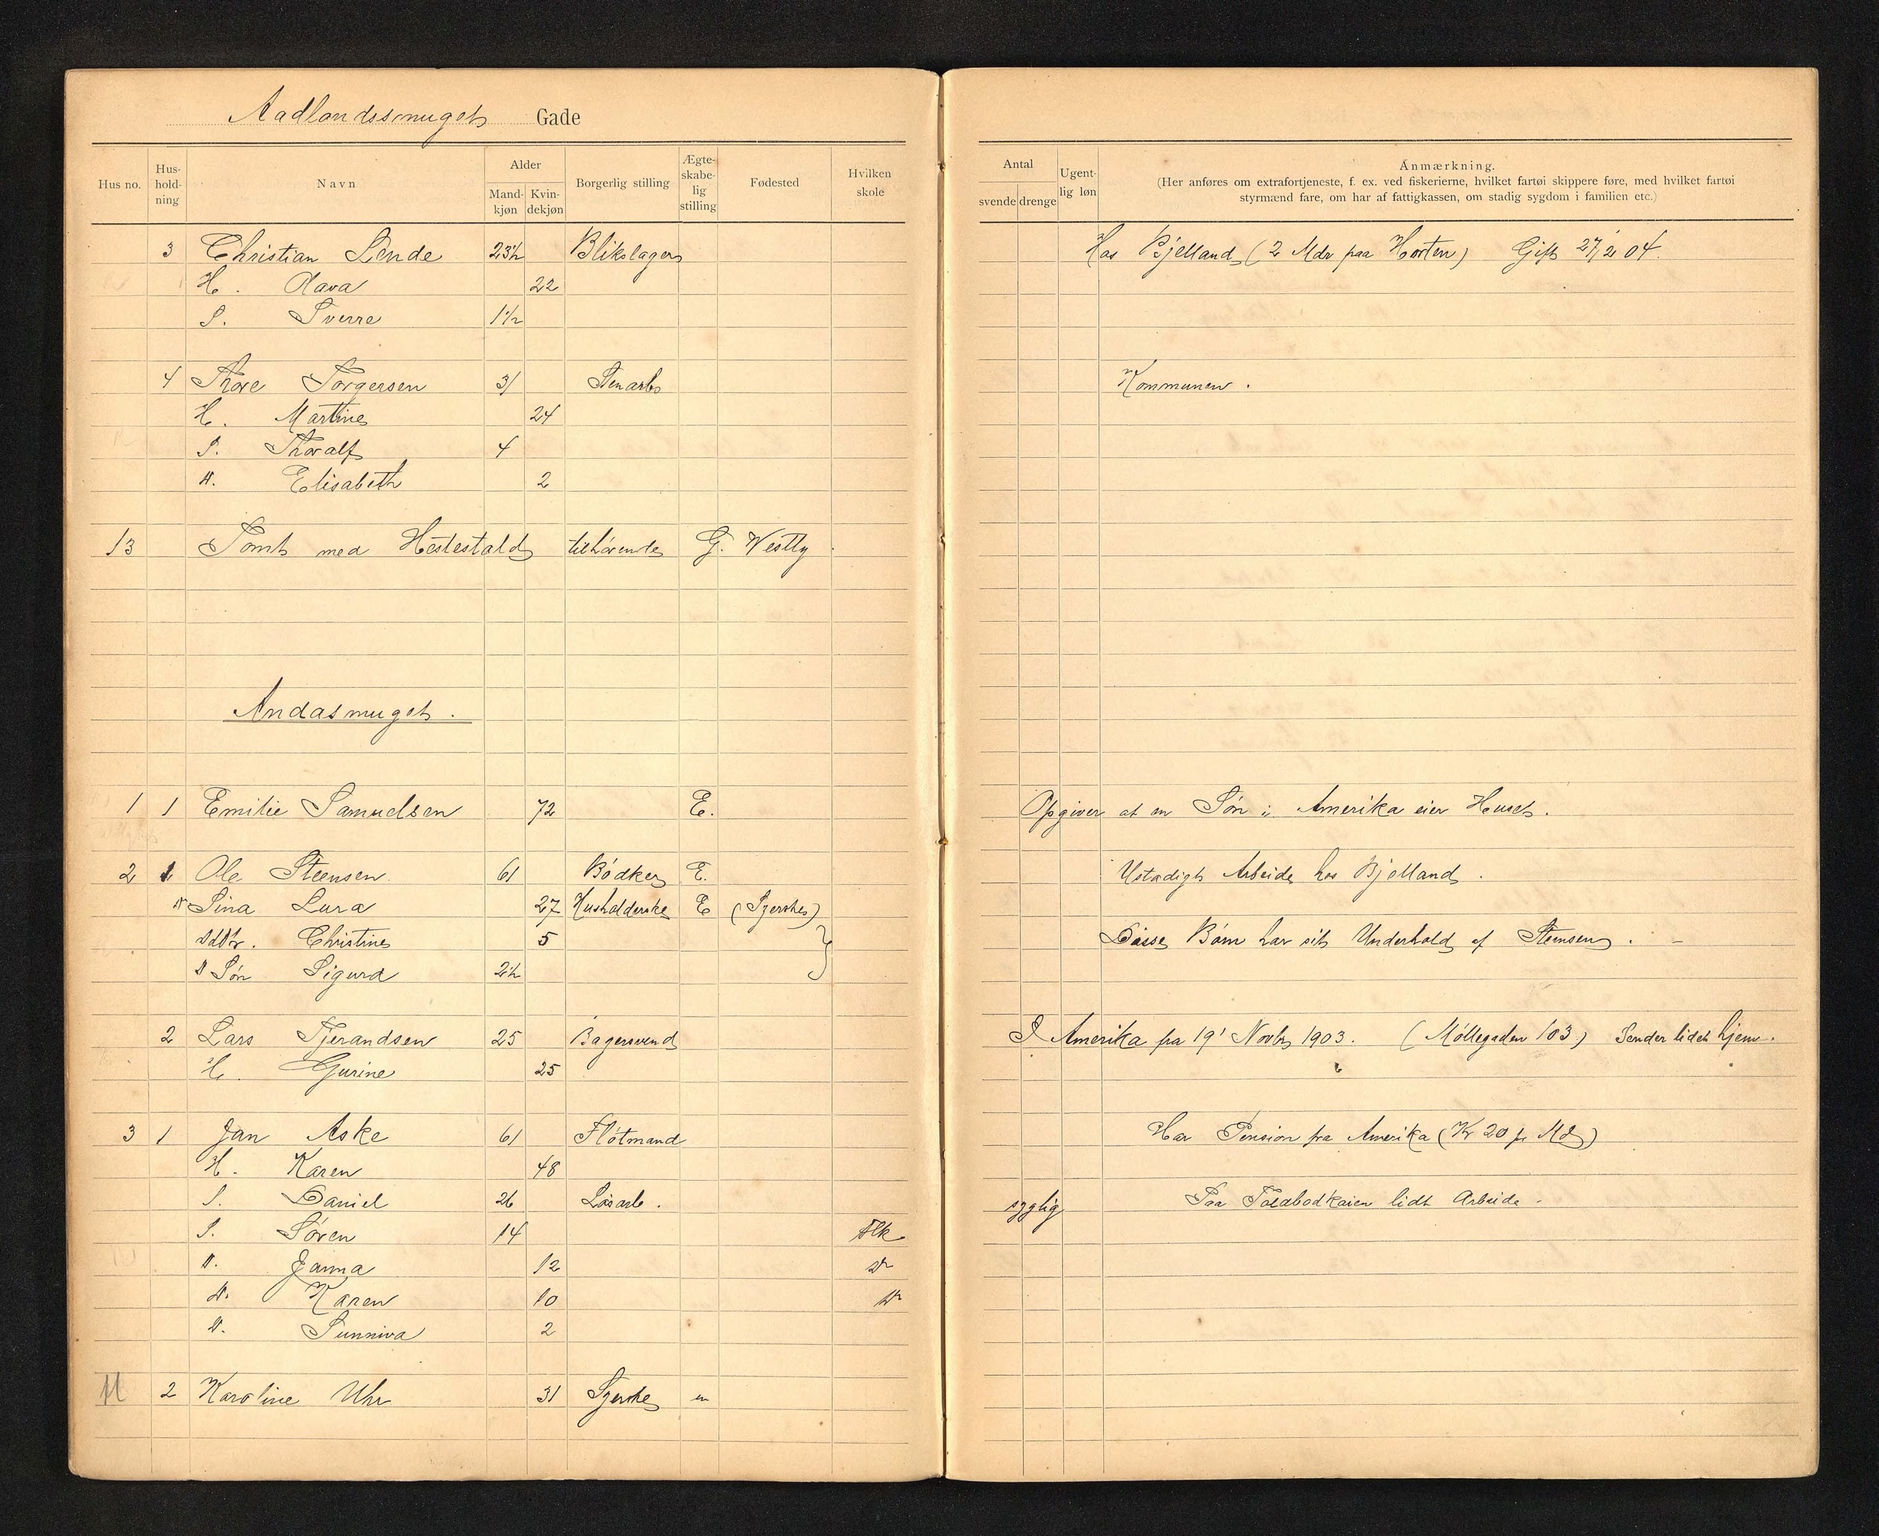 Aadlandssmuget Gade
Hus no. Hus-hold-ning Navn Alder Mand-kjøn Kvin-dekjøn Borgerlig stilling Ægte-skabe-lig stilling Fødested Hvilken skole
Antal svende drenge Ugent-lig løn Anmærkning.
(Her anføres om extrafortjeneste, f. ex. ved fiskerierne, hvilket fartøi skippere føre, med hvilket fartøi
styrmænd fare, om har af fattigkassen, om stadig sygdom i familien etc.)
3 Christian Lende 23½ Blikslager Hos Bjelland (2 Mdr paa Horten) Gift 27/2 04.
H. Olava 22
S. Sverre 1½
4 Thore Torgersen 31 Stenarb Kommunen.
H. Martine 24
S. Thoralf 4
D. Elisabeth 2
13 Tomt med Hestestald tilhørende G. Vestly.
Andasmuget.
1 1 Emilie Samuelsen 72 E. Opgiver at en Søn i Amerika eier Huset.
2 1 Ole Steensen 61 Bødker E. Ustadigt Arbeide hos Bjelland.
D Sina Lura 27 Husholderske E (Syerske)
Ddtr. Christine 5 Disse Børn har sit Underhold af Steensen.
D Søn Sigurd 2½
2 Lars Tjerandsen 25 Bagersvend I Amerika fra 19' Novbr 1903. (Møllegaden 103) Sender lidet hjem.
H. Gurine 25
3 1 Jan Aske 61 Fløtmand Har Pension fra Amerika (Kr 20 pr Md)
H. Karen 48
S. Daniel 26 Løsarb. syglig Paa Toldbodkaien lidt Arbeide.
S. Søren 14 Flk
D. Janna 12 Do
D. Karen 10 Do
D. Sunniva 2
2 Karoline Uhr 31 Syerske en